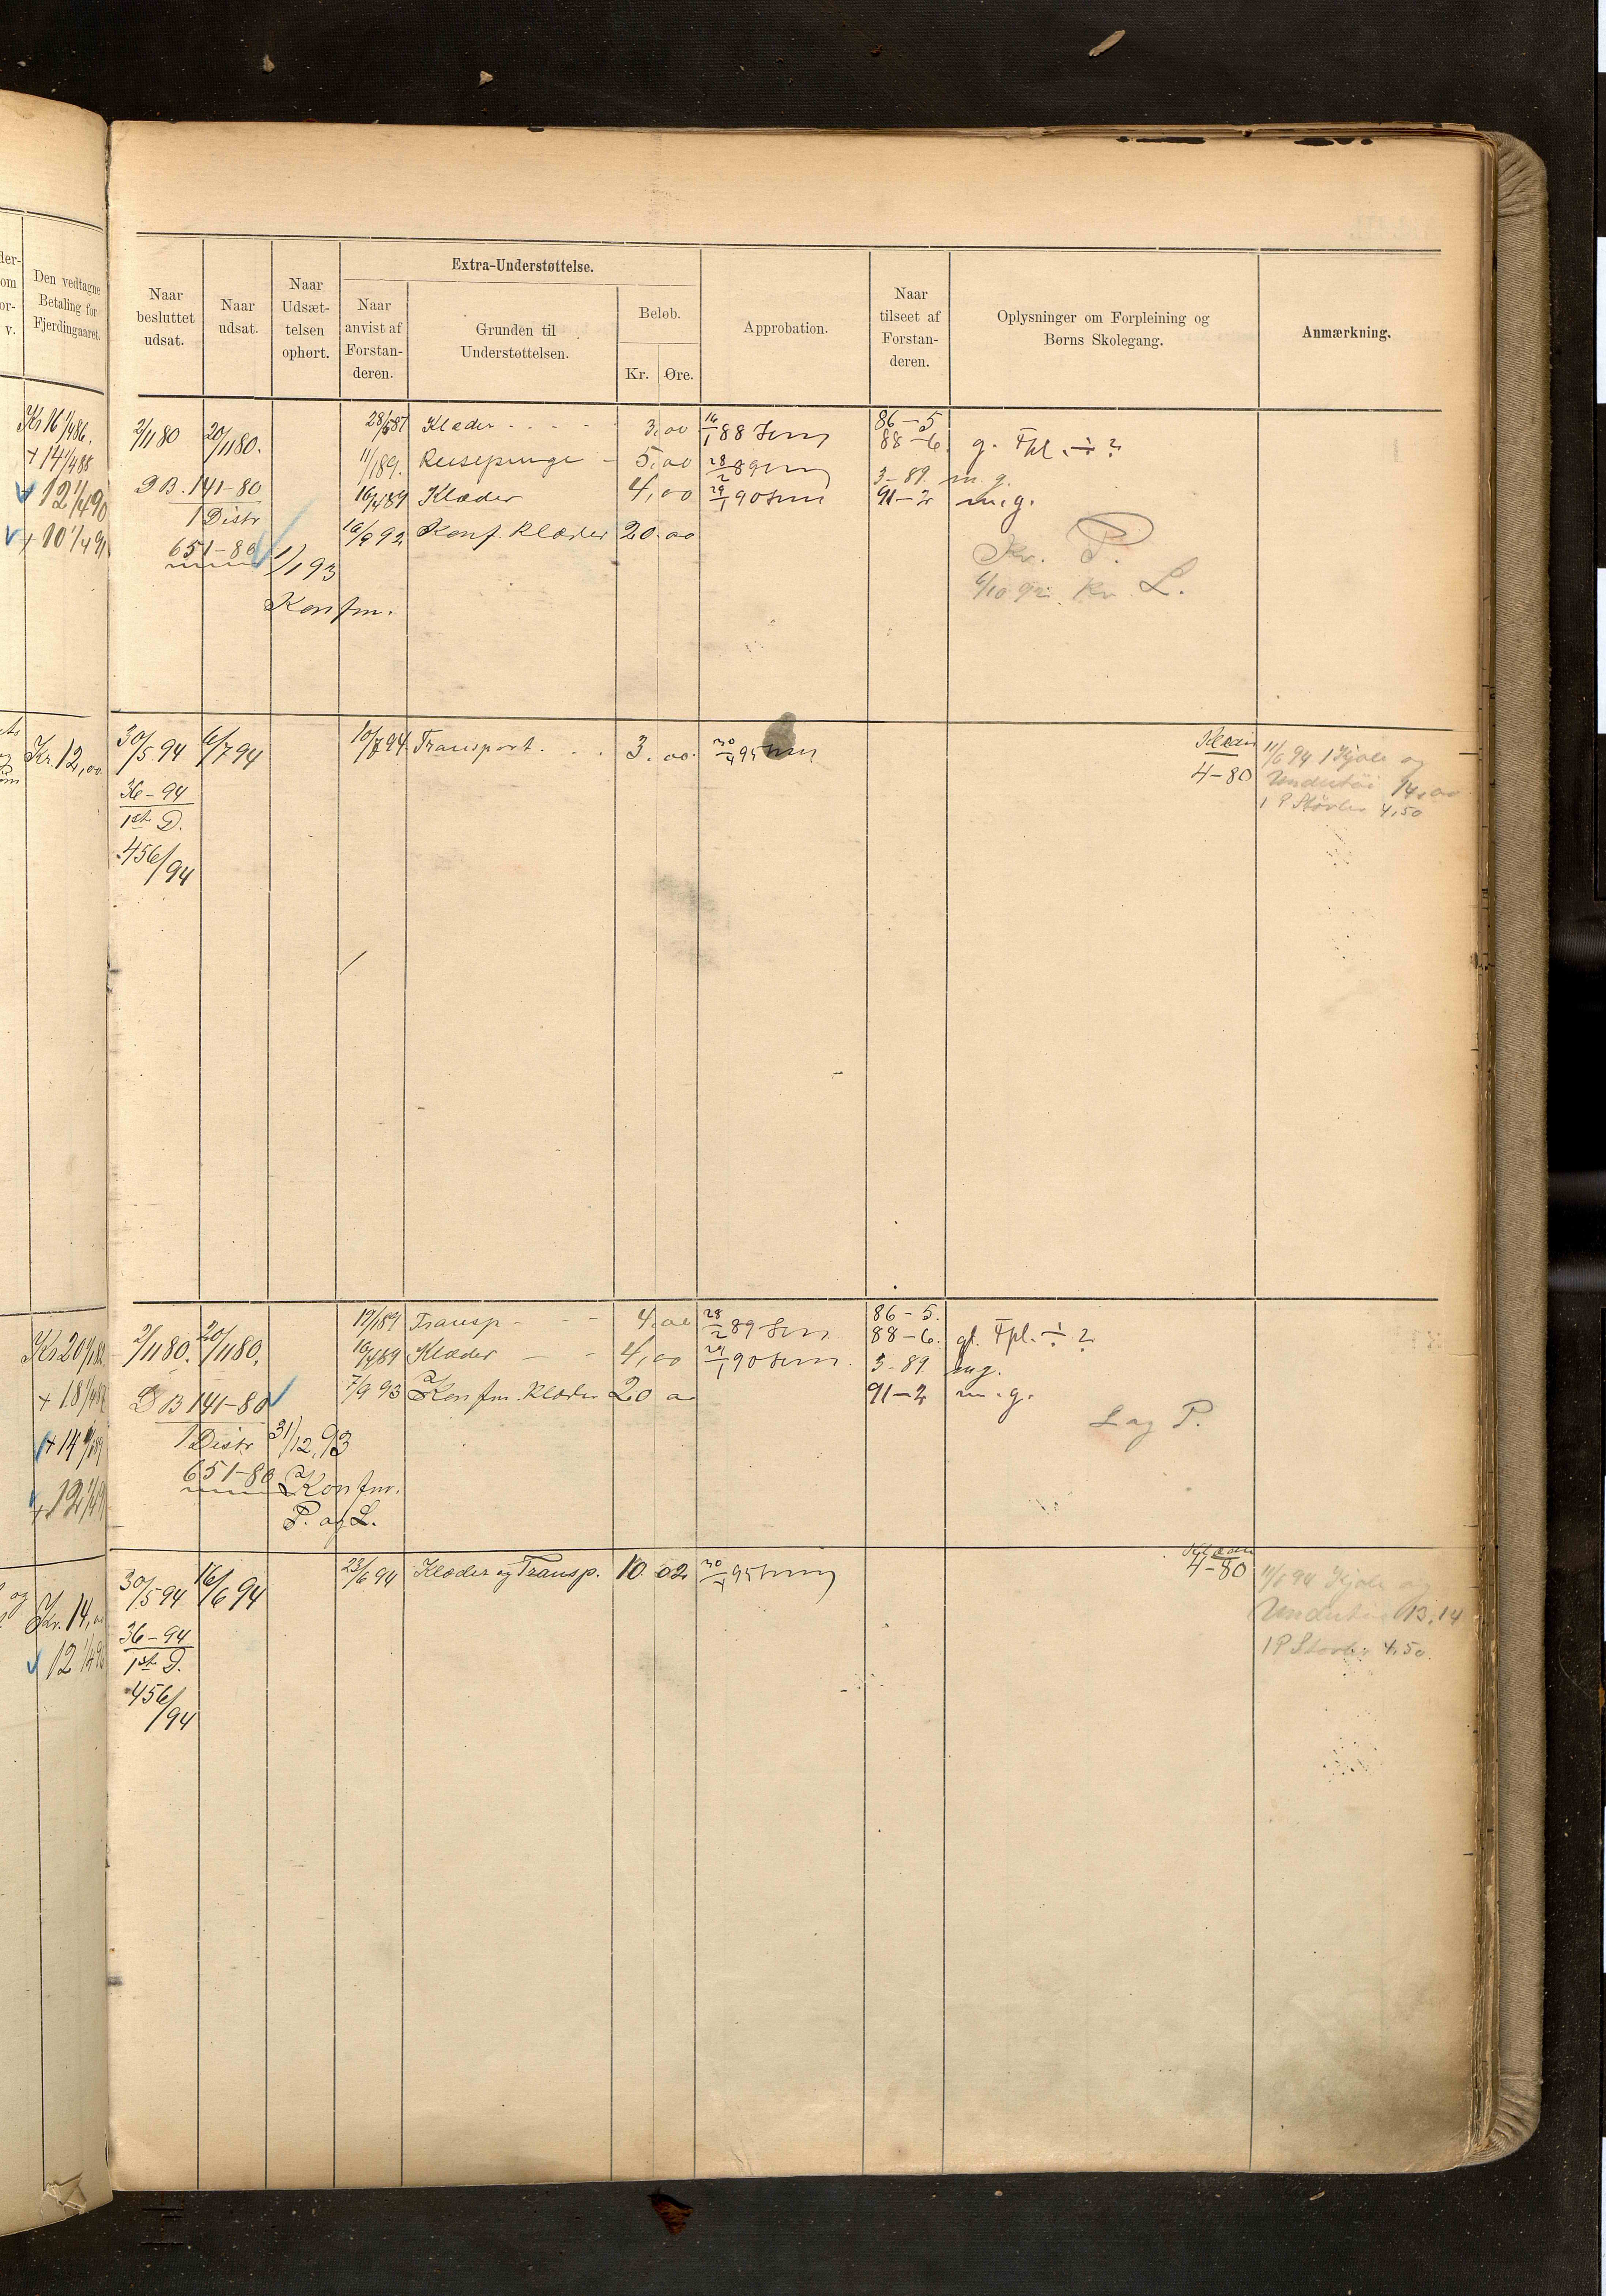 der-
om
or-
v.
Den vedtagne
Betaling for
Fjerdingaaret.
Naar
besluttet
udsat.
Naar
udsat.
Naar
Udsæt-
telsen
ophørt.
Extra-Understøttelse.
Naar
anvist af
Forstan-
deren.
Grunden til
Understøttelsen.
Beløb.
Kr. Øre.
Approbation.
Naar
tilseet af
Forstan-
deren.
Oplysninger om Forpleining og
Børns Skolegang.
Anmærkning.
Kr 16 1/4 86.
+ 14 1/4 88
+ 12 1/4 90
+ 10 1/4 91
2/11 80 20/11 80. 28/5 87 Klæder - - - - 3.00 16/1 88 86-5
88-6 g. Fpl. ÷ ?
11/1 89. Reisepenge - 5.00 28/2 89 3-89 m. g.
D B. 141-80 16/4 89 Klæder 4,00 29/1 90 91-2 m. g.
1 Distr
16/6 92 Konf. Klæder 20.00
651-80 1/1 93
Konfm.
Kr. P.
6/10 92. Kr. L.
Kr. 12,00
30/5 94 6/7 94 10/7 94 Transport. . . 3.00 30/4 95 Klæder
4-80
11/6 94 1 Kjole og
Undertøi 14,00
1 P Støvler 4,50
36-94
1ste D.
456/94
+ 18 1/4 87
2/11 80. 20/11 80. 19/1 89 Transp - - - 4.00 28/2 89 86-5.
88-6. gt. Fpl. ÷ ?
16/4 89 Klæder - - 4,00 29/1 90 3-89 mg.
7/9 93 Konfm. Klæder 20 91-2 m. g.
D B 141-80
1 Distr 31/12 93
651-80 Konfm.
P. og L.
L og P.
og
Kr. 14,
12 1/4
30/5 94 16/6 94 23/6 94 Klæder og Transp. 10.02 30/4 95 Klæder
4-80
11/6 94 Kjole og
Undertøi 13,14
1 P Støvler 4,50.
36-94
1ste D.
456/94